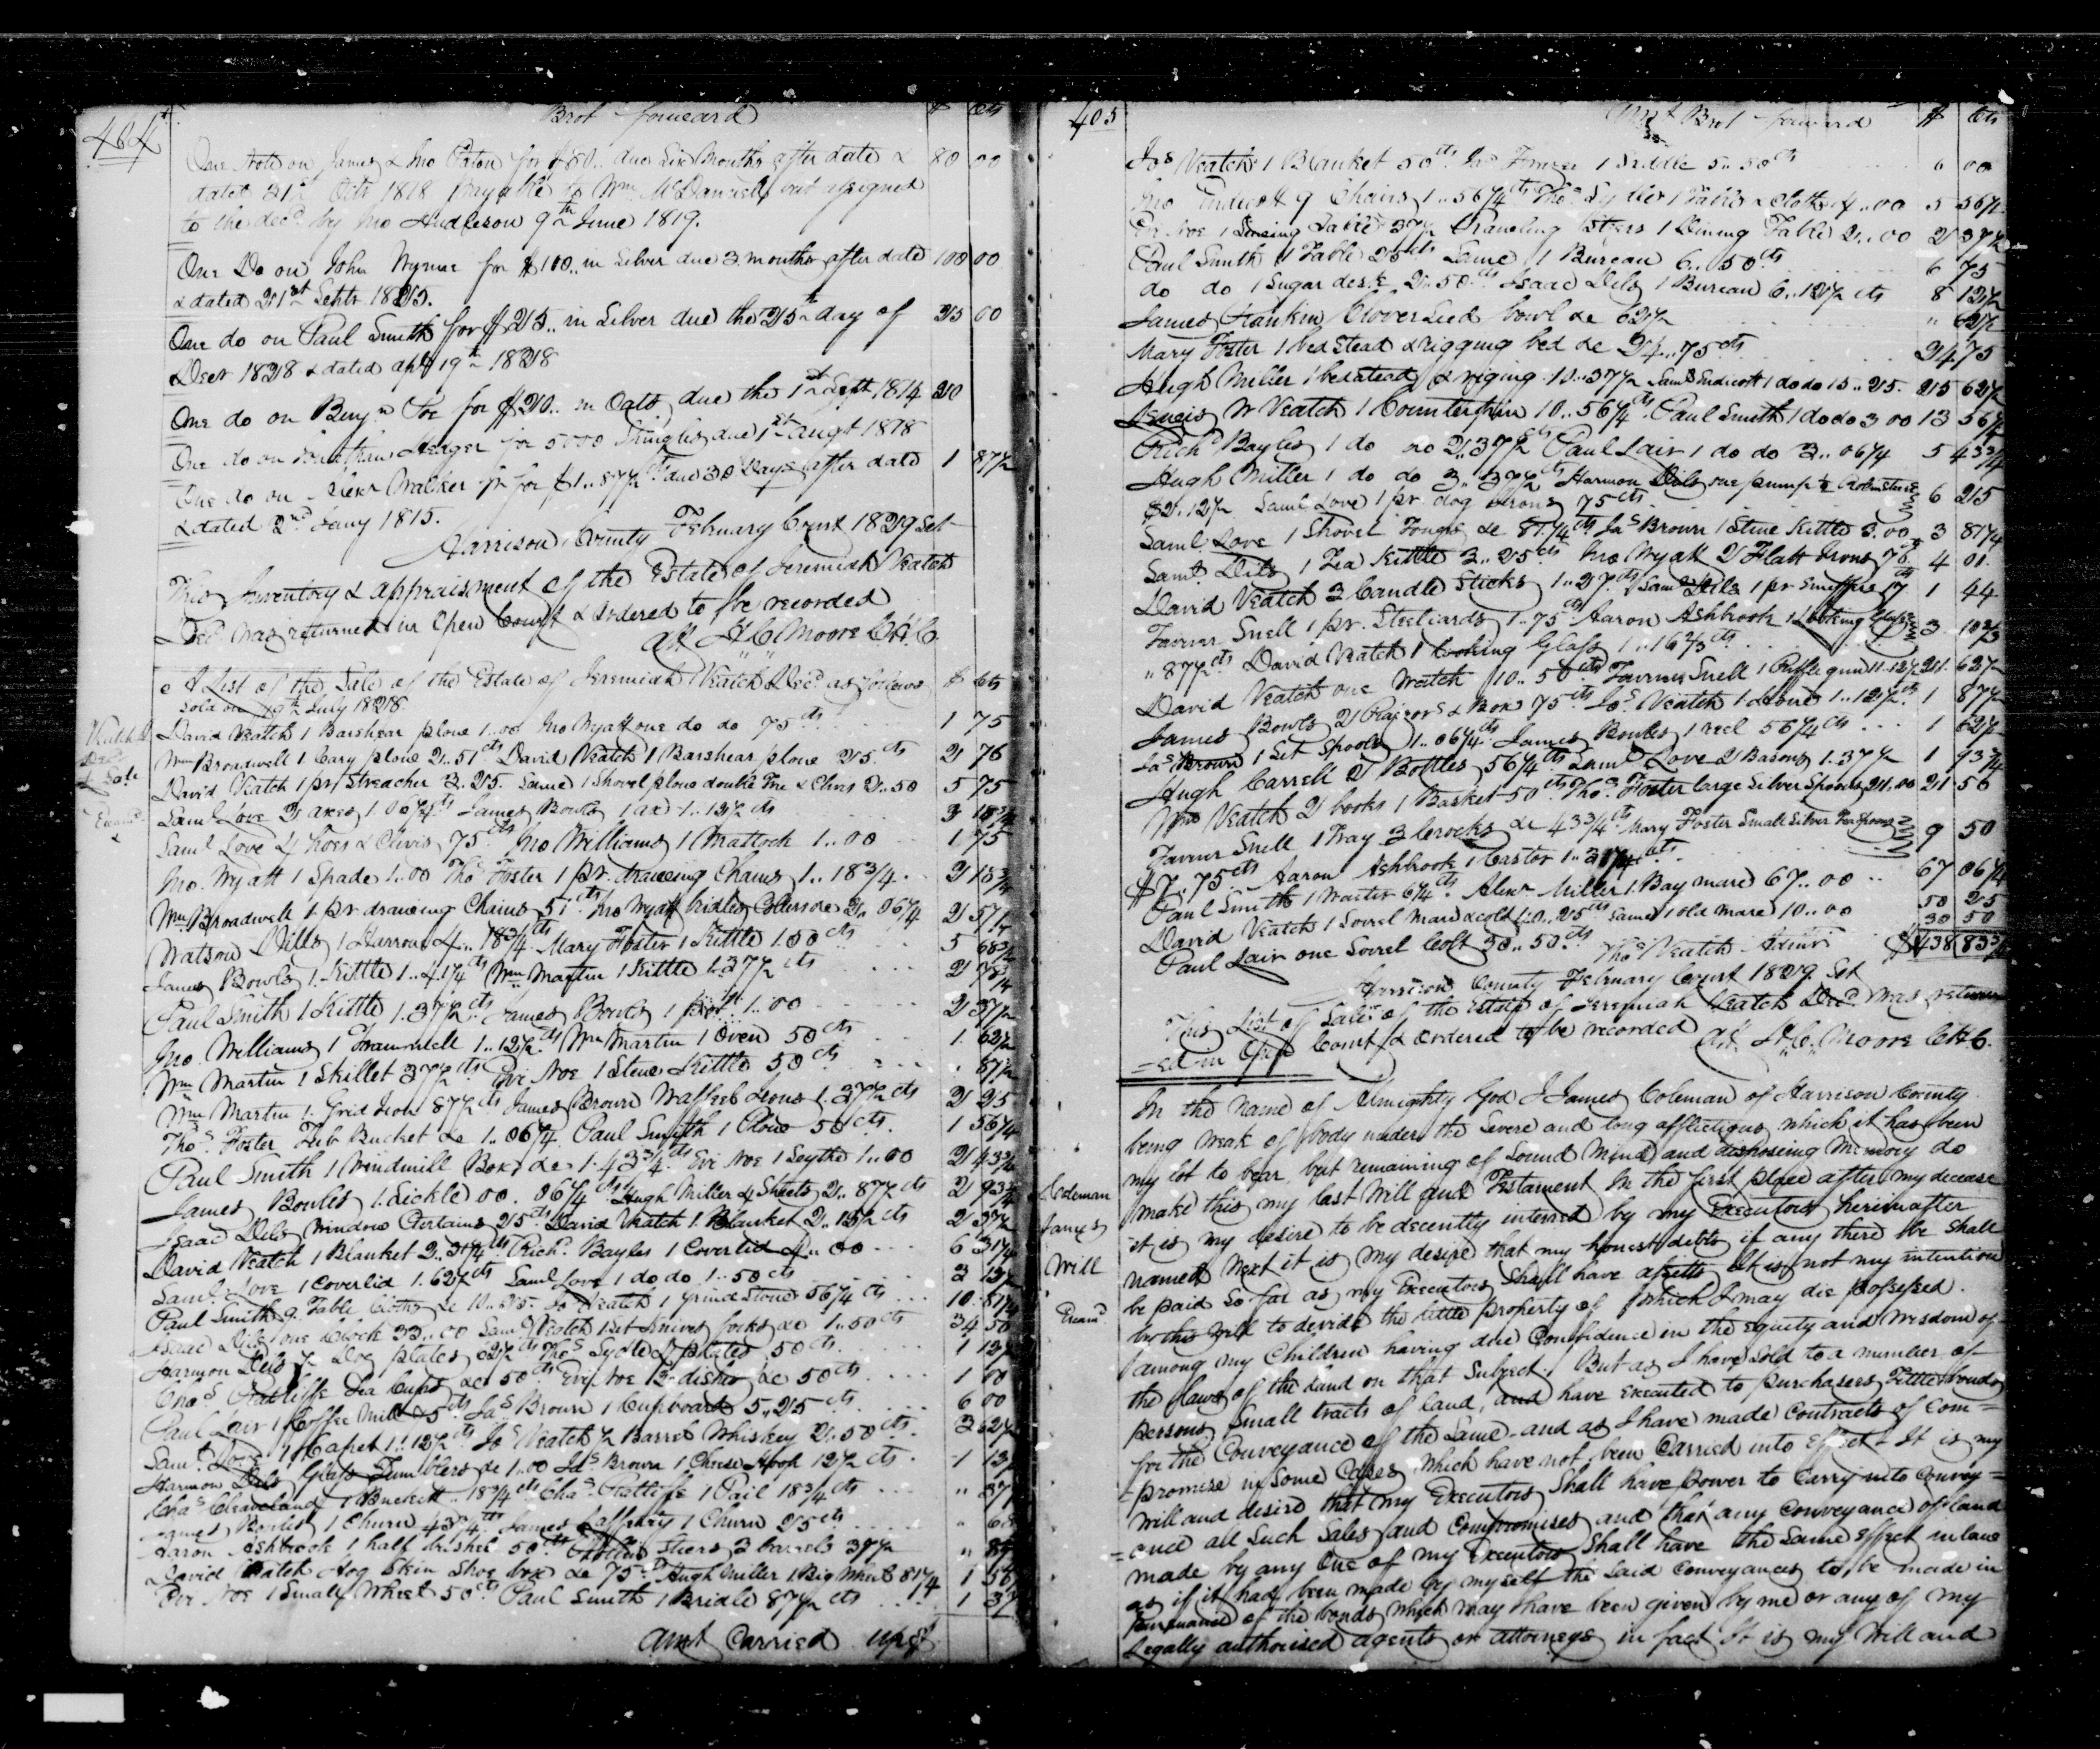 404
Brot forward $ Cts
One Note on James & Jno Paton for $80.. due Six Months after date & 80 00
dated 31st Octr 1818 payable to Wm McDannell but assigned
to the decd by Jno Huddleson 9th June 1819.
One Do on John Wymar for $100.. in Silver due 3 months after date 100 00
& dated 21st Septr 1825.
One do on Paul Smith for $25.. in Silver due the 25th day of 25 00
Decr 1828 & dated apl 19th 1828
One do on Benjn for $20.. in Oats due the 1st Sept 1814 20
One do on Jonathan for 5000 Shingles due 1st augt 1818
One do on Alexr Walker jr for $1..87½ cts due 30 Days after date 1 87½
& dated 2nd Jany 1815.
Harrison County February Court 1829 Sct
This Inventory & appraisment of the Estate of Jeremiah Veatch
Decd was returned in Open Court & ordered to be recorded
att H. C. Moore C.H.C.
A List of the Sale of the Estate of Jeremiah Veatch Decd as follows $ Cts
Sold on 19th July 1828.
Veatch J
Decd
& Sale
Examd
David Veatch 1 Barshear plow 1..00 Jno Wyatt one do do 75 cts 1 75
Wm Broadwell 1 Cary plow 2..51 cts David Veatch 1 Barshear plow 25 cts 2 76
David Veatch 1 pr Streacher 3..25. Same 1 Shovel plow double Tre & Clivis 2..50 5 75
Saml Love 3 axes 1.06¼ cts James Bowls 1 ax 1..12½ cts 3 18¾
Saml Love 4 hoes & Clivis 75 cts Jno Williams 1 Mattock 1..00 1 75
Jno. Wyatt 1 Spade 1..00 Thos Foster 1 pr. drawing Chains 1..18¾ 2 18¾
Wm Broadwell 1 pr drawing Chains 51 cts Jno Wyatt bridle Collars &c 2..06¼ 2 57¼
Watson Dills 1 Harrow 4..18¾ cts Mary Foster 1 Kittle 1.50 cts 5 68¾
James Bowls 1 Kittle 1..41¼ cts Wm Martin 1 Kittle 1.37½ cts 2 78¾
Paul Smith 1 Kittle 1.37½ cts James Bowls 1 pot 1..00 2 37½
Jno. Williams 1 Trammell 1..12½ cts Wm Martin 1 Oven 50 cts 1. 62½
Wm Martin 1 Skillet 37½ cts Evi Noe 1 Stew Kittle 50 cts . 87½
Wm Martin 1 Grid Iron 87½ cts James Brown Waffel Irons 1.37½ cts 2 25
Thos Foster Tub Bucket &c 1..06¼. Paul Smith 1 Plow 50 cts. 1 56¼
Paul Smith 1 Windmill Box &c 1.43¾ cts Evi Noe 1 Scythe 1..00 2 43¾
James Bowles 1 Sickle 00.06¼ cts Hugh Miller 4 Sheets 2..87½ cts 2 93¾
Isaac Dils Window Certains 25 cts David Veatch 1 Blanket 2..12½ cts 2 37½
David Veatch 1 Blanket 2..31¼ cts Richd Bayles 1 Coverlid 4..00 6 31¼
Saml Love 1 Coverlid 1.62½ cts Saml Love 1 do do 1..50 cts 3 12½
Paul Smith 9 Table Cloths &c 10..25. Js Veatch 1 Grind Stone 56¼ cts 10 81¼
Isaac Dils one Clock 33..00 Saml Veatch 1 Set Knives forks &c 1..50 cts 34 50
Harmon Dils ½ Doz plates 62½ cts Thos Sydler 4 plates 50 cts 1 12½
Chas Ratliffe Tea Cups &c 50 cts Evi Noe 3 dishes &c 50 cts 1 00
Paul Lair 1 Coffee Mill 75 cts Jas Brown 1 Cupboard 5..25 cts 6 00
Saml Love 1 Carpet 1..12½ cts Js Veatch ½ Barrel Whiskey 2..50 cts 3 62½
Harmon Dils Glass Tumblers &c 1.00 Jas Brown 1 Cheese Hoop 12½ cts 1 12½
Chas Cleaveland 1 Buckett ..18¾ cts Chas Ratliffe 1 Pail 18¾ cts " 37½
James Bowles 1 Churn 43¾ cts James Lafferty 1 Churn 25 cts " 68
Aaron Ashbrook 1 half bushel 50 cts Stiers 3 barrels 37½ " 87
David Veatch Hog Skin Shoe box &c 75 cts Hugh Miller 1 Big Wheel 81¼ 1 56
Evi Noe 1 Small Wheel 50 cts Paul Smith 1 Bridle 87½ cts 1 37
amt Carried up
405
Amt Brot forward $ Cts
Jos Veatch 1 Blanket 50 cts Jas Frazer 1 Saddle 5..50 cts 6 00
Jno Endicott 9 Chairs 1..56¼ cts Thos Sydler 1 Table & Cloth 4..00 5 56¼
Evi Noe 1 Table 37½ Stiers 1 Dining Table 2..00 2 37½
Paul Smith 1 Table 25 cts Same 1 Bureau 6..50 cts 6 75
do do 1 Sugar desk 2..50 cts Isaac Dils 1 Bureau 6..12½ cts 8 12½
James Rankin Clover Seed bowl &c 62½ " 62½
Mary Foster 1 bed Stead & rigging bed &c 24..75 cts 24 75
Hugh Miller 1 bedstead & riging 10..37½ Saml Endicott 1 do do 15..25. 25 62½
W Veatch 1 Counterpin 10..56¼ cts Paul Smith 1 do do 3 00 13 56¼
Richd Bayles 1 do do 2..37½ cts Paul Lair 1 do do 3..06¼ 5 43¾
Hugh Miller 1 do do 3..37½ Harmon Dils one pump
$2.12½ Saml Love 1 pr. dog Irons 75 cts 6 25
Saml Love 1 Shovel Tongs &c 81¼ cts Jas Brown 1 Stew Kittle 3.00 3 81¼
Saml Dils 1 Tea Kittle 3..25 cts Jno Wyatt 2 Flatt Irons 76 4 01.
David Veatch 3 Candle Sticks 1..27 cts Saml Dils 1 pr Snuffers 17 cts 1 44
Farmer Snell 1 pr. Steeliards 1..75 cts Aaron Ashbrook 1 Looking Glass 3 10⅔
" 87½ cts David Veatch 1 Looking Glass 1..16⅔ cts
David Veatch one Watch 10..50 cts Farmer Snell 1 Riffle gun 11.12½ 21. 62½
James Bowls 2 Raizors & Box 75 cts Jos Veatch 1 1..12½ cts 1 87½
Jas Brown 1 Set Spools 1..06¼ cts James Bowles 1 reel 56¼ cts 1 62½
Hugh Carrell 2 Bottles 56¼ cts Saml Love 2 Basons 1.37½ 1 93¾
Wm Veatch 2 books 1 Basket 50 cts Thos Foster large Silver Spoons 21.00 21 50
Farmer Snell 1 Tray 3 Crocks &c 43¾ cts Mary Foster Small Silver Tea Spoons 9 50
$7..75 cts Aaron Ashbrook 1 Castor 1..31¼ cts
Paul Smith 1 Waiter 6¼ cts. Alexr Miller 1 Bay mare 67..00 67 06¼
David Veatch 1 Sorrel Mare & colt 40..25 cts same 1 old mare 10..00 50 25
Paul Lair one Sorrel Colt 30..50 cts 30 50
Thos Veatch Admr $438 83¾
Harrison County February Court 1829 Sct
This List of Sale of the Estate of Jeremiah Veatch Decd was return
=ed in Open Court & Ordered to be recorded att. H. C. Moore C.H.C.
In the name of Almighty God I James Coleman of Harrison County
being weak of body under the Severe and long afflictions which it has been
my lot to bear, but remaining of Sound Mind and disposing Memory do
Coleman
James
Will
Examd
make this my last Will and Testament In the first place after my decease
it is my desire to be decently interred by my Executors hereinafter
named Next it is my desire that my honest debts if any there be shall
be paid So far as my Executors Shall have assetts It is not my intention
by this Will to devide the little property of which I may die possessed
among my Children having due Confidence in the Equity and Wisdom of
the Laws of the Land on that Subject. But as I have Sold to a number of
persons Small tracts of land, and have executed to purchasers Title bonds
for the Conveyance of the Same - and as I have made Contracts of Com=
=promise in Some Cases which have not been Carried into Effect It is my
Will and desire that my Executors Shall have Power to Carry into Convey=
=ance all Such Sales and Compromises and that any Conveyance of land
made by any One of my Executors Shall have the Same Effect in law
as if it had been made by myself the Said Conveyances to be made in
Pursuance of the bonds which may have been given by me or any of my
Legally authorised agents or attorneys in fact It is my Will and